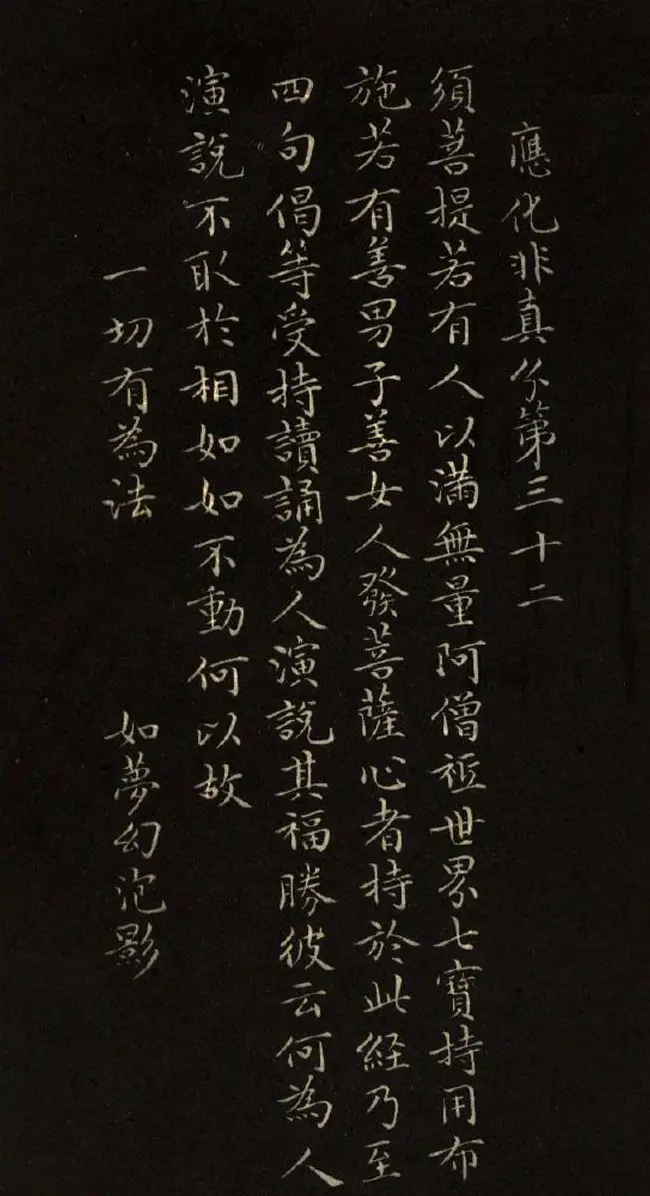 應化非真分第三十二
須菩提若有人以滿無量阿僧祇世界七寶持用布
施若有善男子善女人發菩薩心者持於此経乃至
四句偈等受持讀誦為人演說其福勝彼云何為人
演說不取於相如如不動何以故
一切有為法 如夢幻泡影